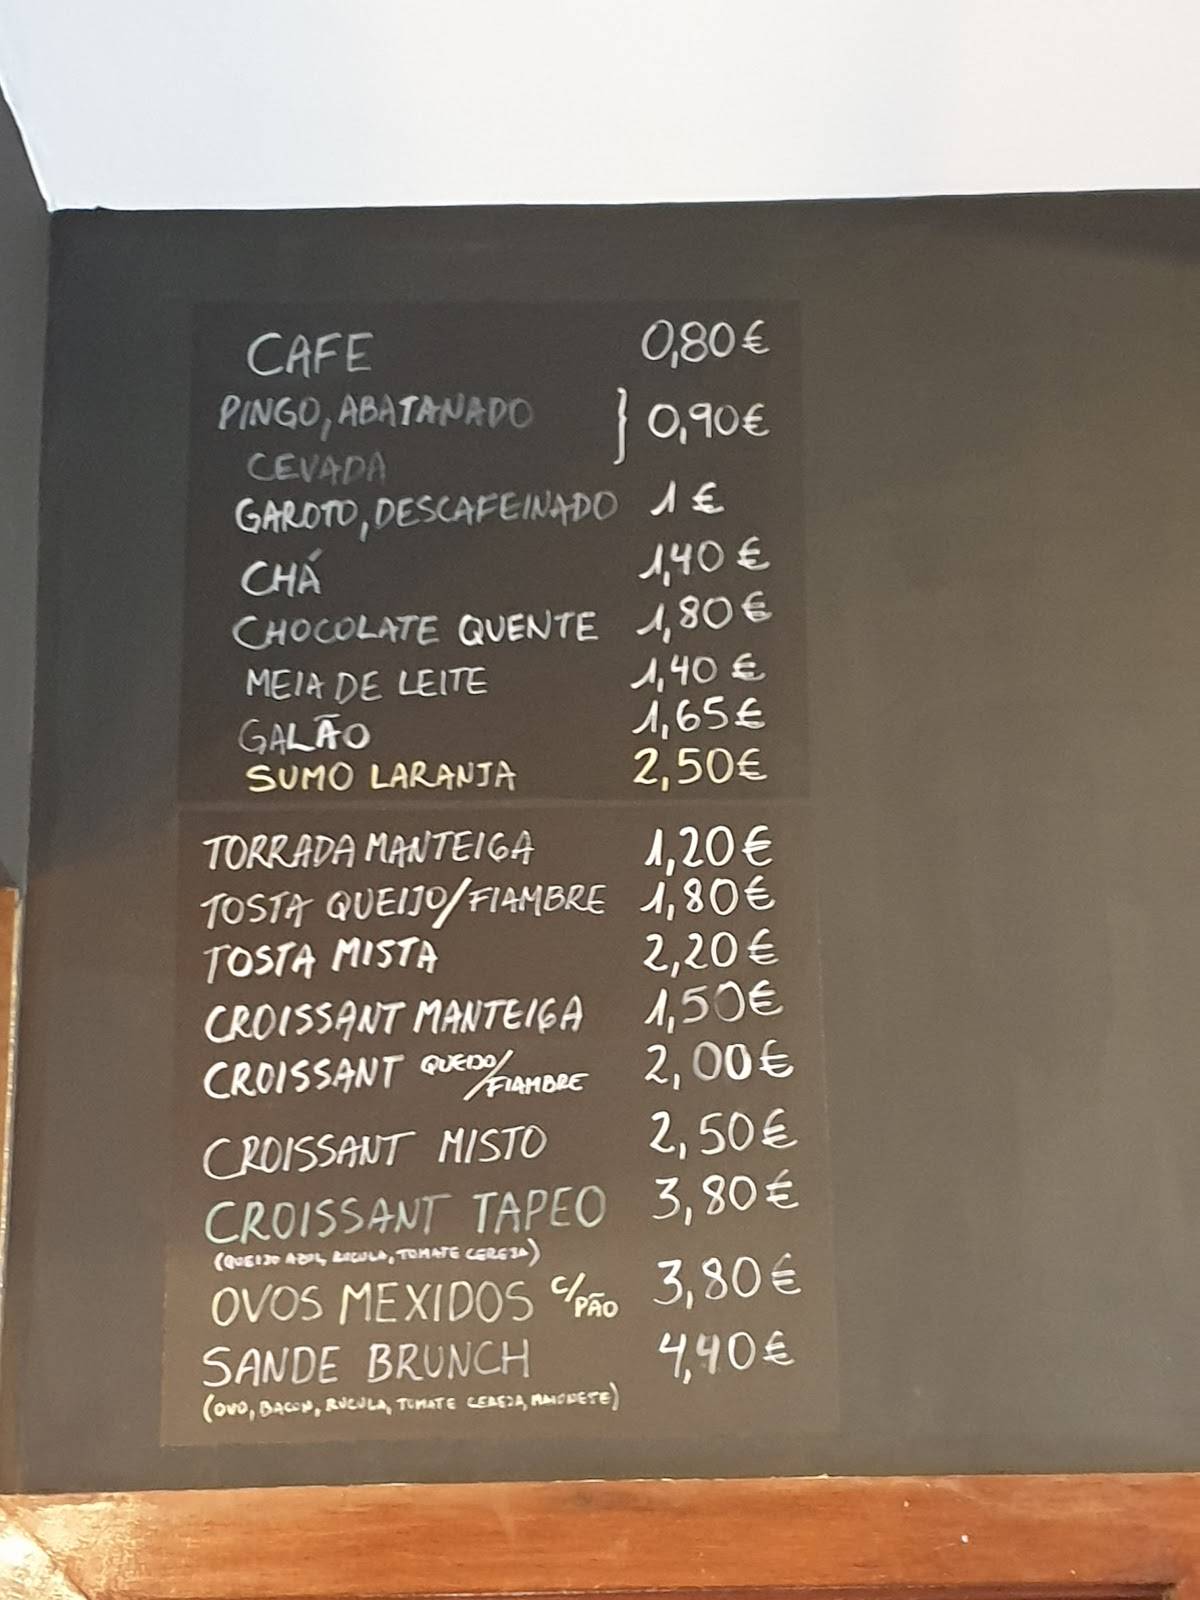 CAFE 0,80€
PINGO, ABATANADO } 0,90€
CEVADA
GAROTO, DESCAFEINADO 1€
CHÁ 1,40€
CHOCOLATE QUENTE 1,80€
MEIA DE LEITE 1,40€
GALÃO 1,65€
SUMO LARANJA 2,50€
TORRADA MANTEIGA 1,20€
TOSTA QUEIJO/FIAMBRE 1,80€
TOSTA MISTA 2,20€
CROISSANT MANTEIGA 1,50€
CROISSANT QUEIJO/FIAMBRE 2,00€
CROISSANT MISTO 2,50€
CROISSANT TAPEO 3,80€
(QUEIJO AZUL, RÚCULA, TOMATE CEREJA)
OVOS MEXIDOS C/PÃO 3,80€
SANDE BRUNCH 4,40€
(OVO, BACON, RÚCULA, TOMATE CEREJA, MAIONESE)